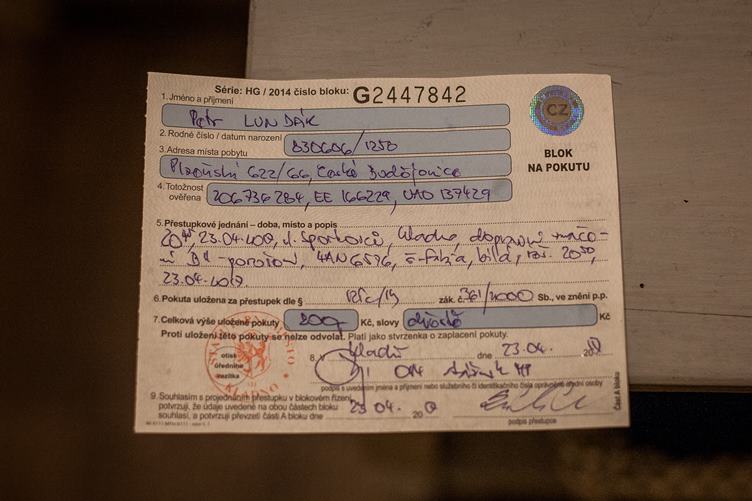 Série: HG / 2014 číslo bloku: G2447842
1. Jméno a příjmení
Petr LUNDÁK
CZ
BLOK
NA POKUTU
2. Rodné číslo / datum narození 830606/1250
3. Adresa místa pobytu
Plzeňská 622/66, České Budějovice
4. Totožnost
ověřena 206736284, EE 166229, UAO 137429
5. Přestupkové jednání – doba, místo a popis
23.04. ul. Sportovců, Kladno, dopravní
4AN6526, bílá,
23.04.
6. Pokuta uložena za přestupek dle § zák. č. 361/2000 Sb., ve znění p.p.
7. Celková výše uložené pokuty 200 Kč, slovy dvěstě Kč
Proti uložení této pokuty se nelze odvolat. Platí jako stvrzenka o zaplacení pokuty.
otisk
úředního
razítka
8. V Kladně dne 23.04. 20
podpis s uvedením jména a příjmení nebo služebního či identifikačního čísla oprávněné úřední osoby
9. Souhlasím s projednáním přestupku v blokovém řízení,
potvrzuji, že údaje uvedené na obou částech bloku
souhlasí, a potvrzuji převzetí části A bloku dne 23 04. 20
podpis přestupce
Část A bloku